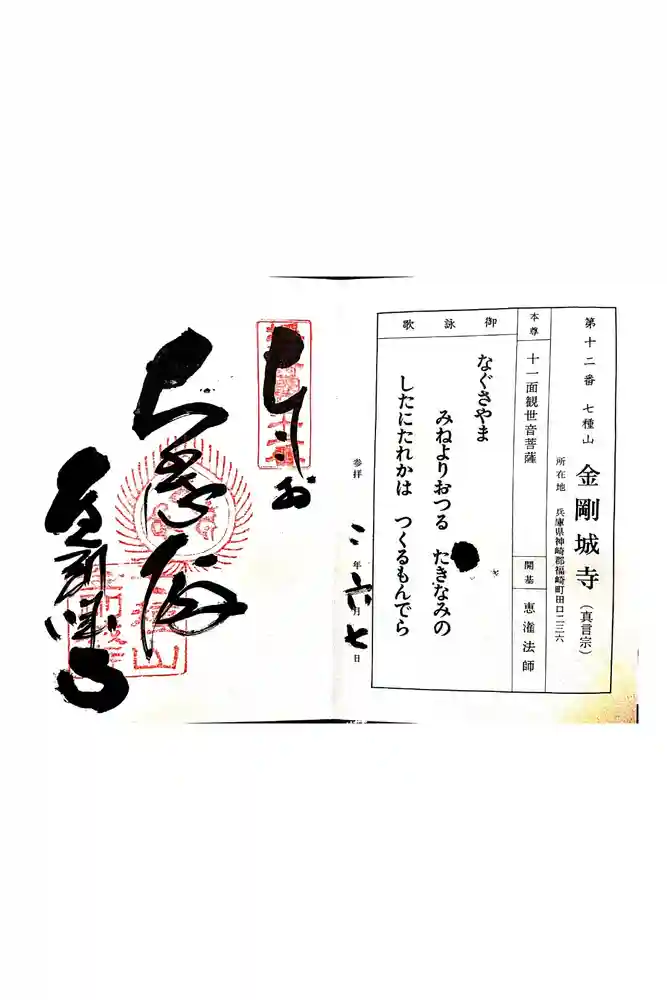 第十二番 七種山 金剛城寺（真言宗）
所在地 兵庫県神崎郡福崎町田口二三六
本尊 十一面観世音菩薩
開基 恵潅法師
御詠歌
なぐさやま
みねよりおつる たきなみの
したにたれかは つくるもんでら
参拝 二年六月七日
大悲殿
金剛城寺